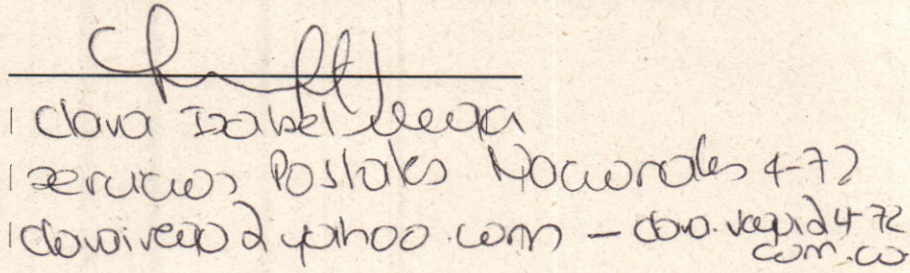 Clara Isabel Vega
Servicios Postales Nacionales 4-72
claraivega@yahoo.com - clara.vega@4-72
com.co